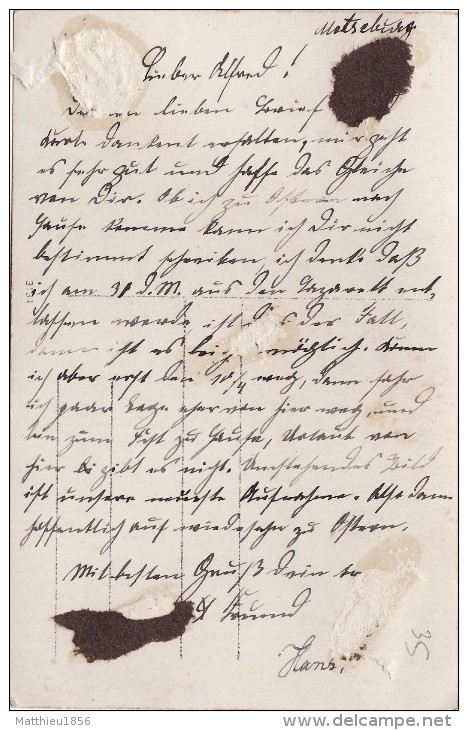 Lieber Alfred!
Deinen lieben Brief
Karte dankend erhalten, mir geht
es sehr gut und hoffe das Gleiche
von Dir. Ob ich zu Ostern nach
Hause komme kann ich Dir nicht
bestimmt schreiben, ich denke daß
ich am 31 d. M. aus dem Lazarett ent-
lassen werde ist dies der Fall,
dann ist es leicht möglich. Komm
ich aber erst den weg, dann fahr
ich paar Tage eher von hier weg, und
bin zum Fest zu Hause, Urlaub von
hier gibt es nicht. Umstehendes Bild
ist unsere Aufnahme. Also dann
hoffentlich auf wiedersehn zu Ostern.
Mit besten Gruß dein
Freund
Hans.
35
Matthieu1856
delcampe.net